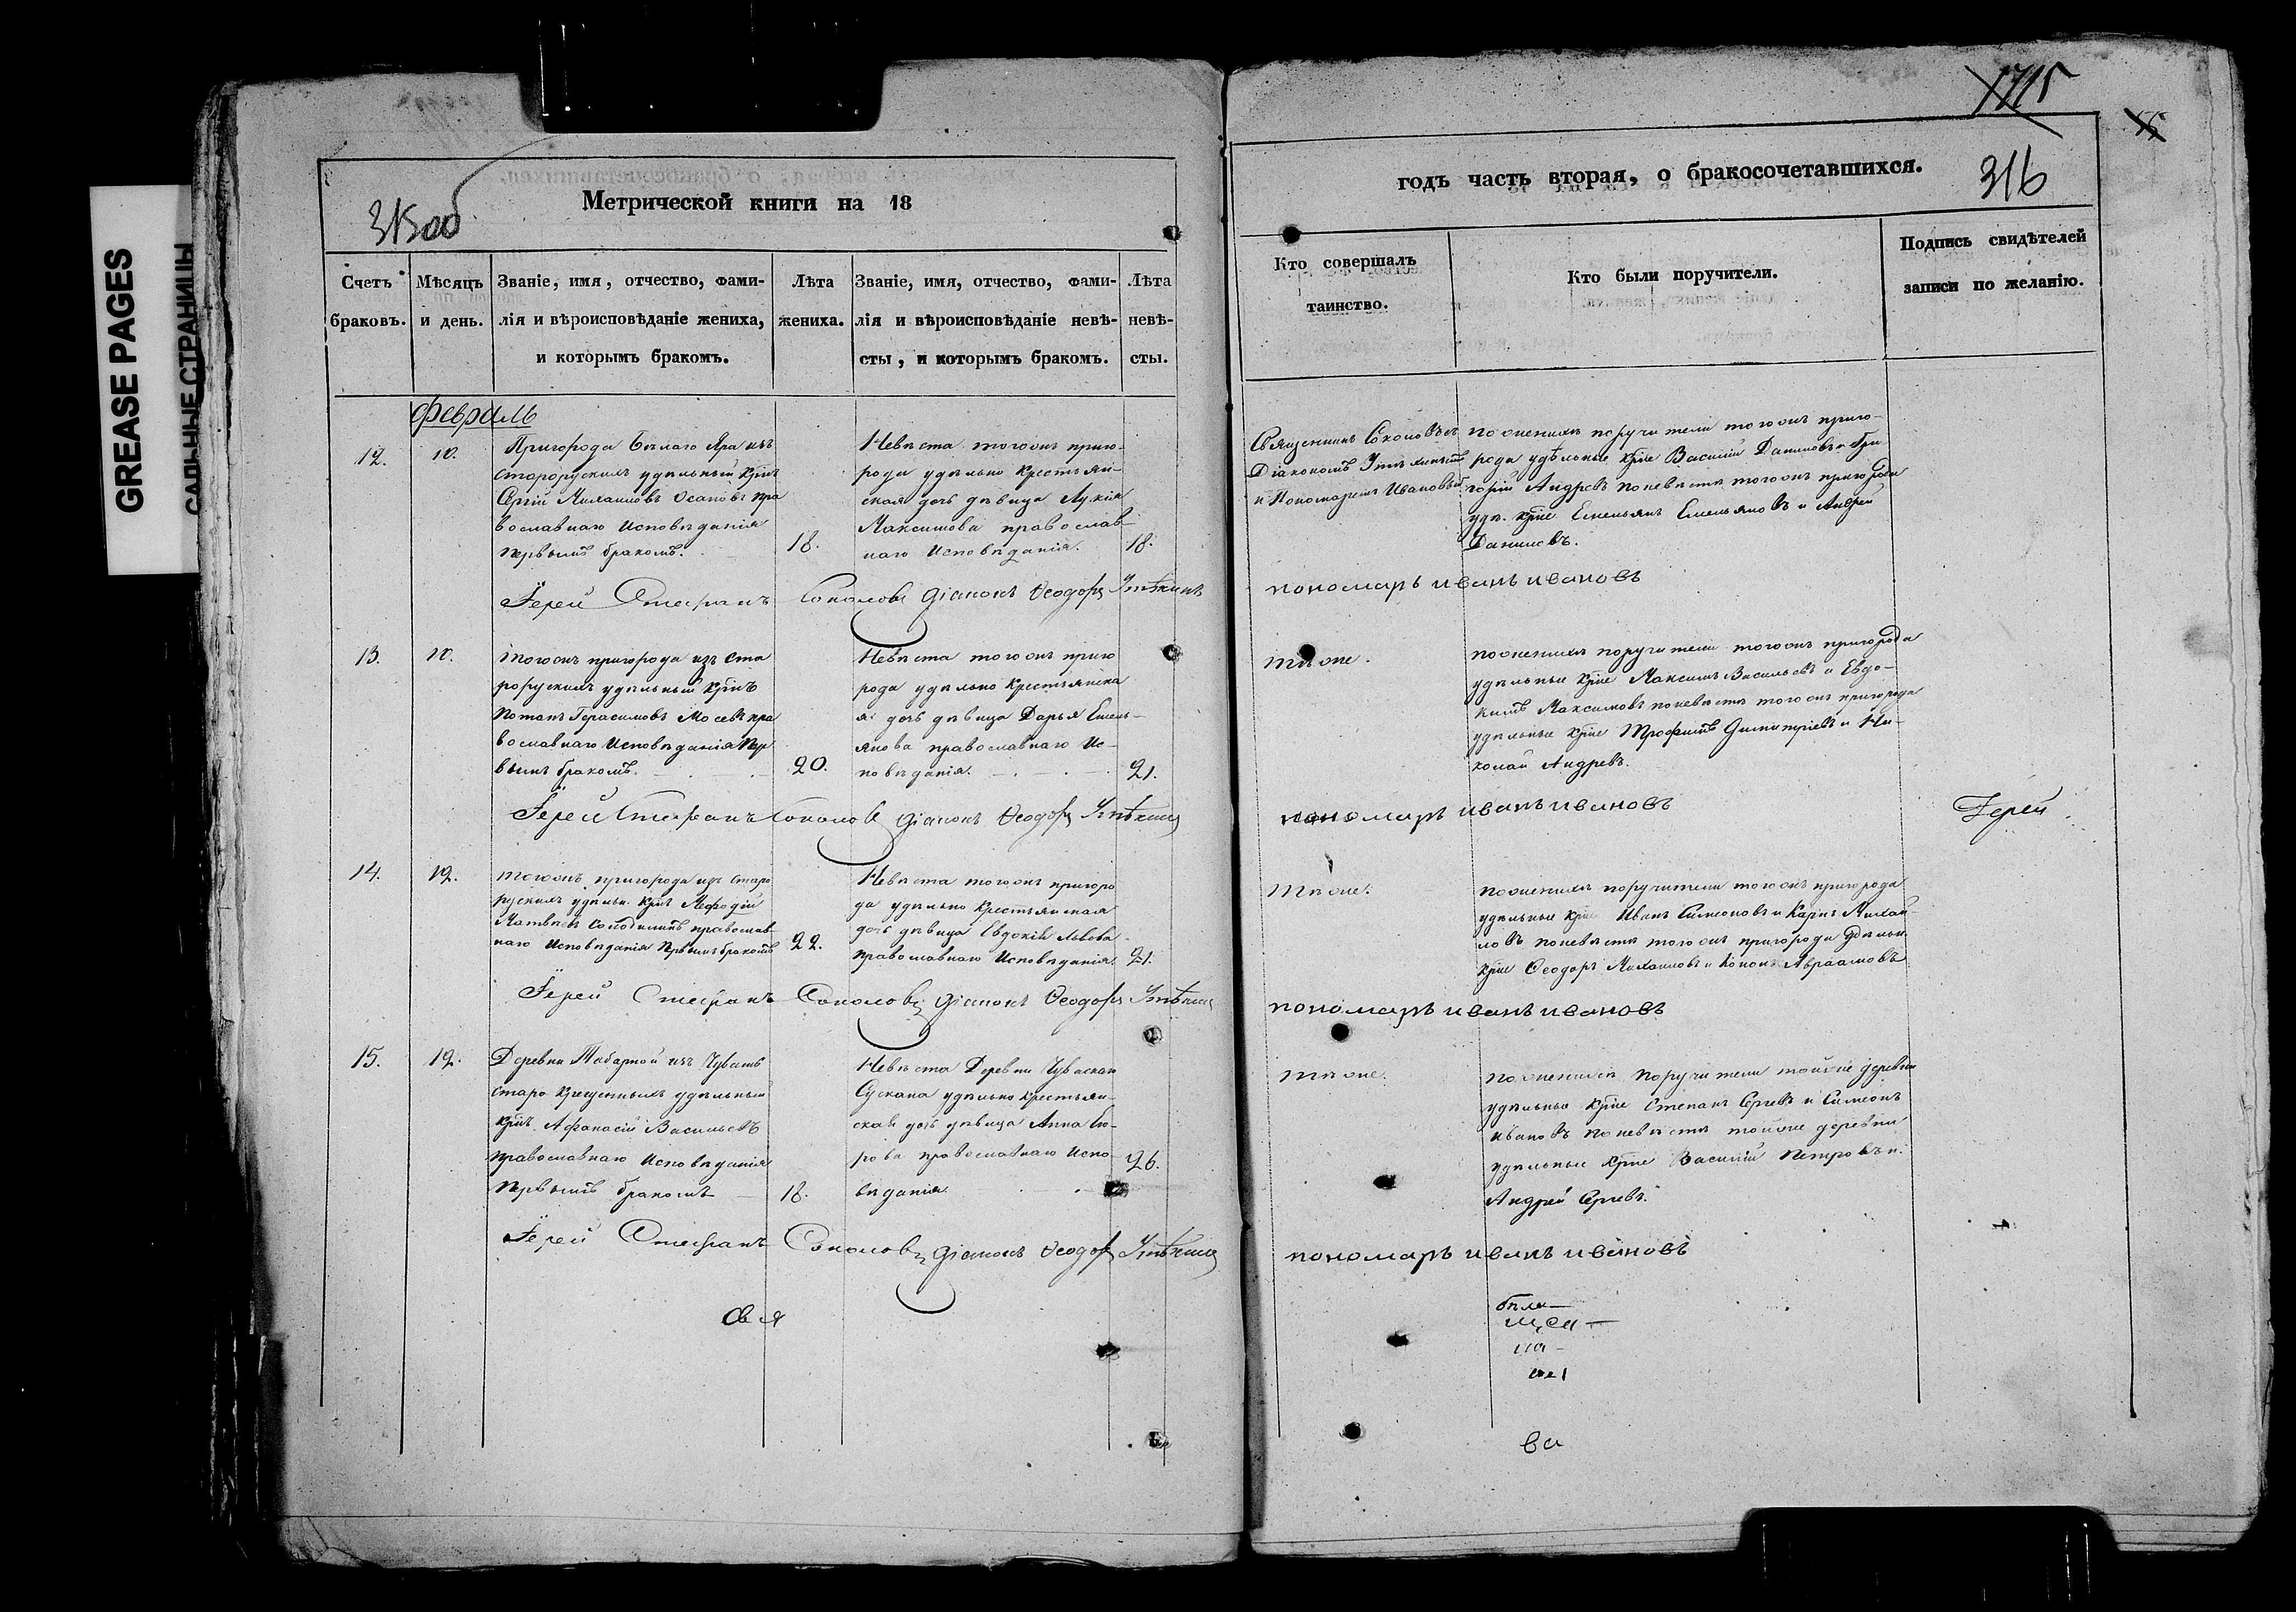 GREASE PAGES
САЛЬНЫЕ СТРАНИЦЫ
315об
Метрической книги на 18
Счетъ браковъ.
Мѣсяцъ и день.
Званіе, имя, отчество, фами-
лія и вѣроисповѣданіе жениха,
и которымъ бракомъ.
Лѣта
жениха.
Званіе, имя, отчество, фами-
лія и вѣроисповѣданіе невѣ-
сты, и которымъ бракомъ.
Лѣта
невѣ-
сты.
февраль
12.
10.
Пригорода Бѣлаго Яра изъ
старорускихъ удѣльный крнъ
Сргій Михаиловъ Осаповъ пра
вославнаго Исповѣданія
первымъ бракомъ.
18.
Невѣста тогожъ приго-
рода удѣльно крестьян-
ская дочь дѣвица Лукія
Максимова православ-
наго Исповѣданія.
18.
Іерей Стефанъ Соколовъ діаконъ Ѳеодоръ Утѣхинъ
13.
10.
тогожъ пригорода изъ ста
рорускихъ удѣльный крнъ
Потапъ Герасимовъ Мосевъ пра
вославнаго Исповѣданія пер
вымъ бракомъ.
20.
Невѣста тогожъ приго
рода удѣльно крестьянска
я дочь дѣвица Дарья Емель-
янова православнаго Ис-
повѣданія.
21.
Іерей Стефанъ Соколовъ діаконъ Ѳеодоръ Утѣхинъ
14.
12.
тогожъ пригорода изъ старо
рускихъ удѣльн. крнъ Мефодій
Матвѣевъ православ-
наго Исповѣданія первымъ бракомъ
22.
Невѣста тогожъ пригоро
да удѣльно крестьянская
дочь дѣвица Евдокія Львова
православнаго Исповѣданія.
21.
Іерей Стефанъ Соколовъ діаконъ Ѳеодоръ Утѣхинъ
15.
12.
Деревни Табарной изъ Чувашъ
старо крещенныхъ удѣльный
крнъ Афанасій Васильевъ
православнаго Исповѣданія
первымъ бракомъ
18.
Невѣста Деревни Чуваскаи
Сускана удѣльно крестьян-
ская дочь дѣвица Анна Его-
рова православнаго Испо
вѣданія.
26.
Іерей Стефанъ Соколовъ діаконъ Ѳеодоръ Утѣхинъ
свя
1715
316
годъ часть вторая, о бракосочетавшихся.
Кто совершалъ
таинство.
Кто были поручители.
Подпись свидѣтелей
записи по желанію.
Священникъ Соколовъ съ
Діакономъ Утѣхинымъ
и Пономаремъ Ивановымъ
по женихѣ поручители тогожъ приго-
рода удѣльные крне Василій Даниловъ и Гри
горій Андревъ по невѣстѣ тогожъ пригорода
удѣ. крне Емельянъ Емельяновъ и Андрей
Даниловъ.
пономарь иванъ ивановъ
тѣ же.
по женихѣ поручители тогожъ пригорода
удѣльные крне Максимъ Васильевъ и Евдо-
кимъ Максимовъ по невѣстѣ тогожъ пригорода
удѣльные крне Трофимъ Димитріевъ и Ни-
колай Андревъ.
пономарь иванъ ивановъ
Іерей
тѣ же.
по женихѣ поручители тогожъ пригорода
удѣльные крне Иванъ Симеоновъ и Карпъ Михай
ловъ по невѣстѣ тогожъ пригорода удѣльн.
крне Ѳеодоръ Михаиловъ и Кононъ Авраамовъ
пономарь иванъ ивановъ
тѣ же.
по женихѣ поручители тойже деревни
удѣльные крне Степанъ Сргевъ и Симеонъ
Ивановъ по невѣстѣ тойже деревни
удѣльные крне Василій Петровъ и
Андрей Сргевъ.
пономарь иванъ ивановъ
на
ва